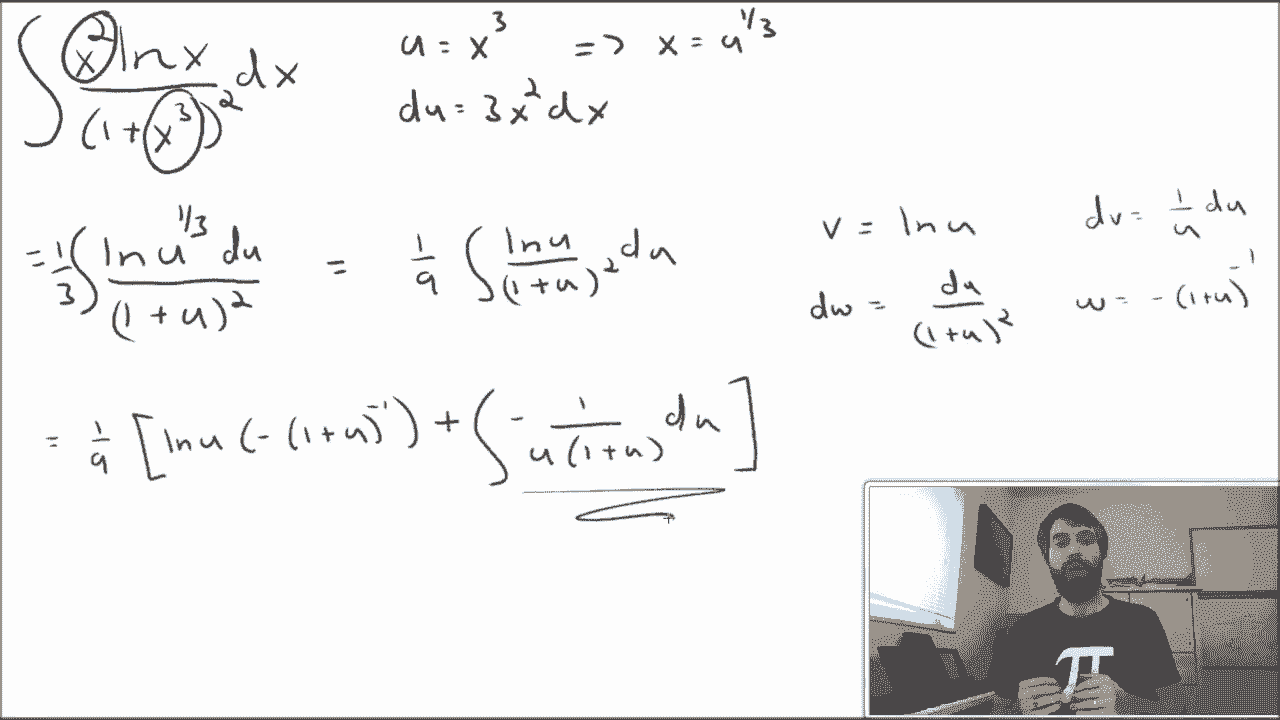 ∫ x² ln x / (1 + x³)² dx    u = x³ => x = u^1/3
du = 3x² dx
= 1/3 ∫ ln u^1/3 du / (1 + u)² = 1/9 ∫ ln u / (1 + u)² du
v = ln u    dv = 1/u du
dw = du / (1+u)²    w = -(1+u)^-1
= 1/9 [ ln u (-(1+u)^-1) + ∫ - 1 / u(1+u) du ]
π